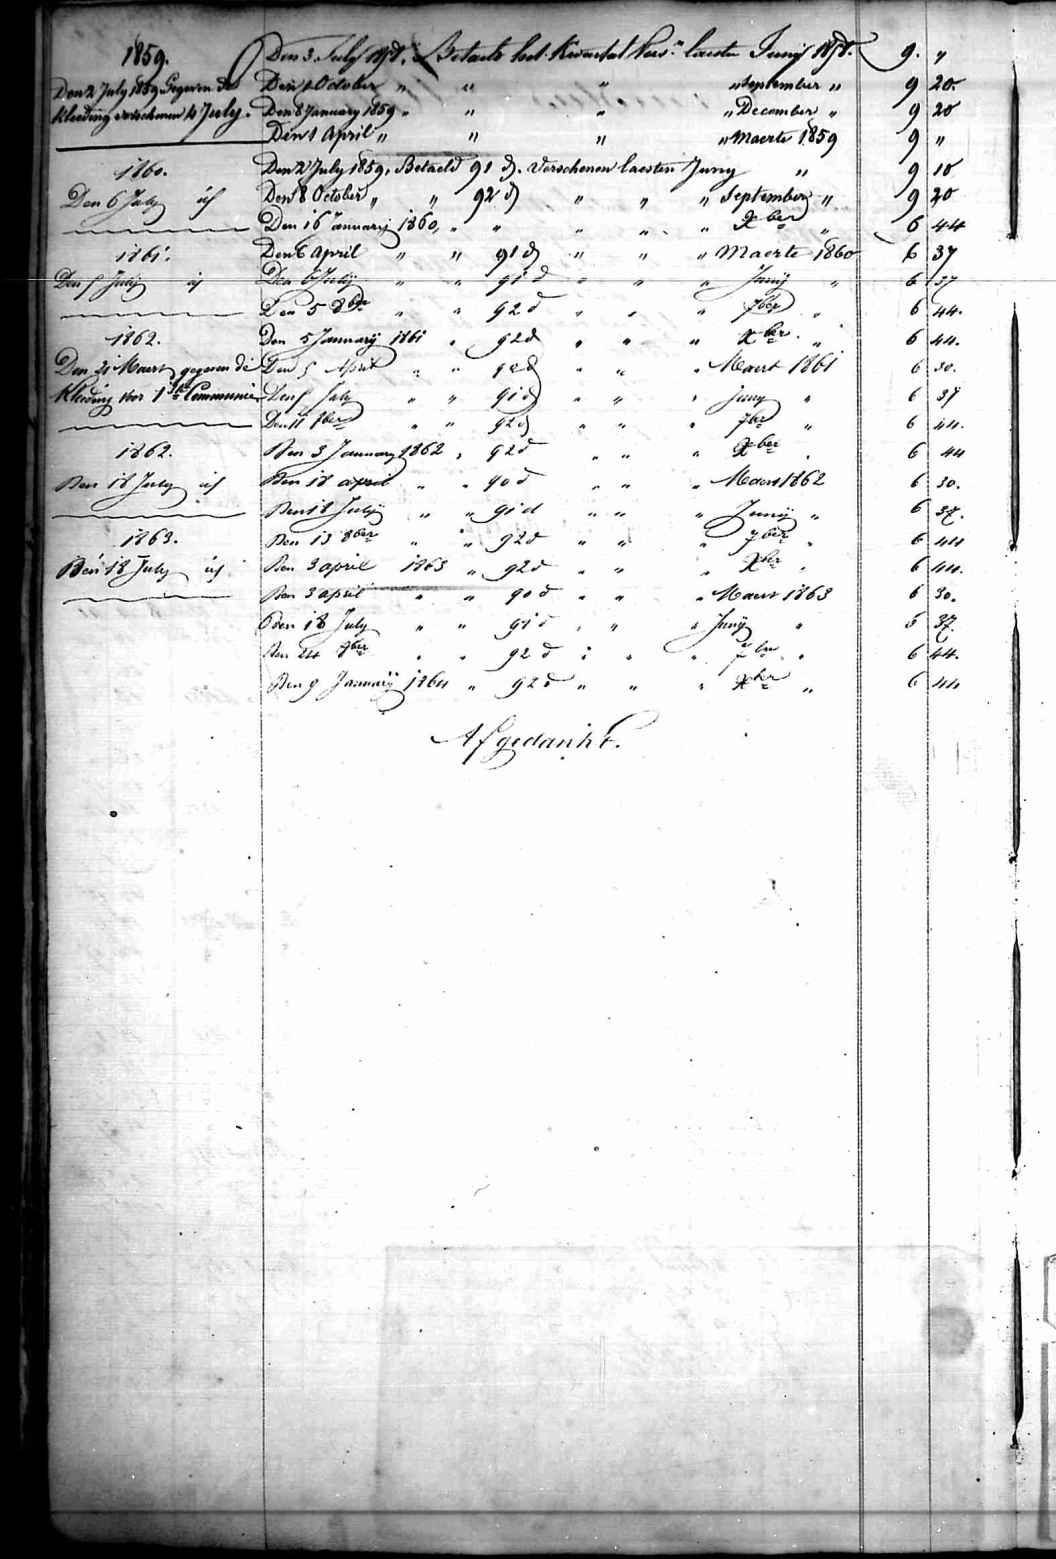 1859. Den 3 July 1858. Betaelt het Kwartal Vers.n laesten Junij 1858. 9. "
Den 2 July 1859 Gegeven de Den 4 October " " " " September " 9 20.
Kleeding verschenen 4 July. Den 8 January 1859 " " " " December " 9 20
Den 1 April " " " " Maerte 1859 9 "
1860. Den 2 July 1859, Betaeld 91 d. Verschenen laesten Juny " 9 10
Den 6 July id Den 8 October " " 92 d " " " September " 9 20
Den 16 Januarij 1860, " " " " " Xber " 6 44
1861. Den 6 April " " 91 d " " " Maerte 1860 6 37
Den 5 July id Den 6 July " " 91 d " " " Junij " 6 37
Den 5 8ber " " 92 d " " " 7ber " 6 44.
1862. Den 5 Januarij 1861 " 92 d " " " Xber " 6 44.
Den 21 Maert gegeven de Den 5 April " " 90 d " " " Maert 1861 6 30.
Kleeding voor 1ste Communie Den 5 July " " 91 d " " " juny " 6 37
Den 11 8ber " " 92 d " " " 7ber " 6 44.
1862. Den 3 January 1862 " 92 d " " " Xber " 6 44
Den 18 July id Den 18 april " " 90 d " " " Maert 1862 6 30.
Den 18 Julij " " 91 d " " " Junij " 6 37.
1863. Den 13 8ber " " 92 d " " " 7ber " 6 44
Den 18 July id Den 3 april 1863 " 92 d " " " Xber " 6 44.
Den 3 april " " 90 d " " " Maert 1863 6 30.
Den 18 July " " 91 d " " " Junij " 6 37.
Den 24 9ber " " 92 d " " " 7ber " 6 44.
Den 9 Januarij 1864 " 92 d " " " Xber " 6 44
Afgedankt.